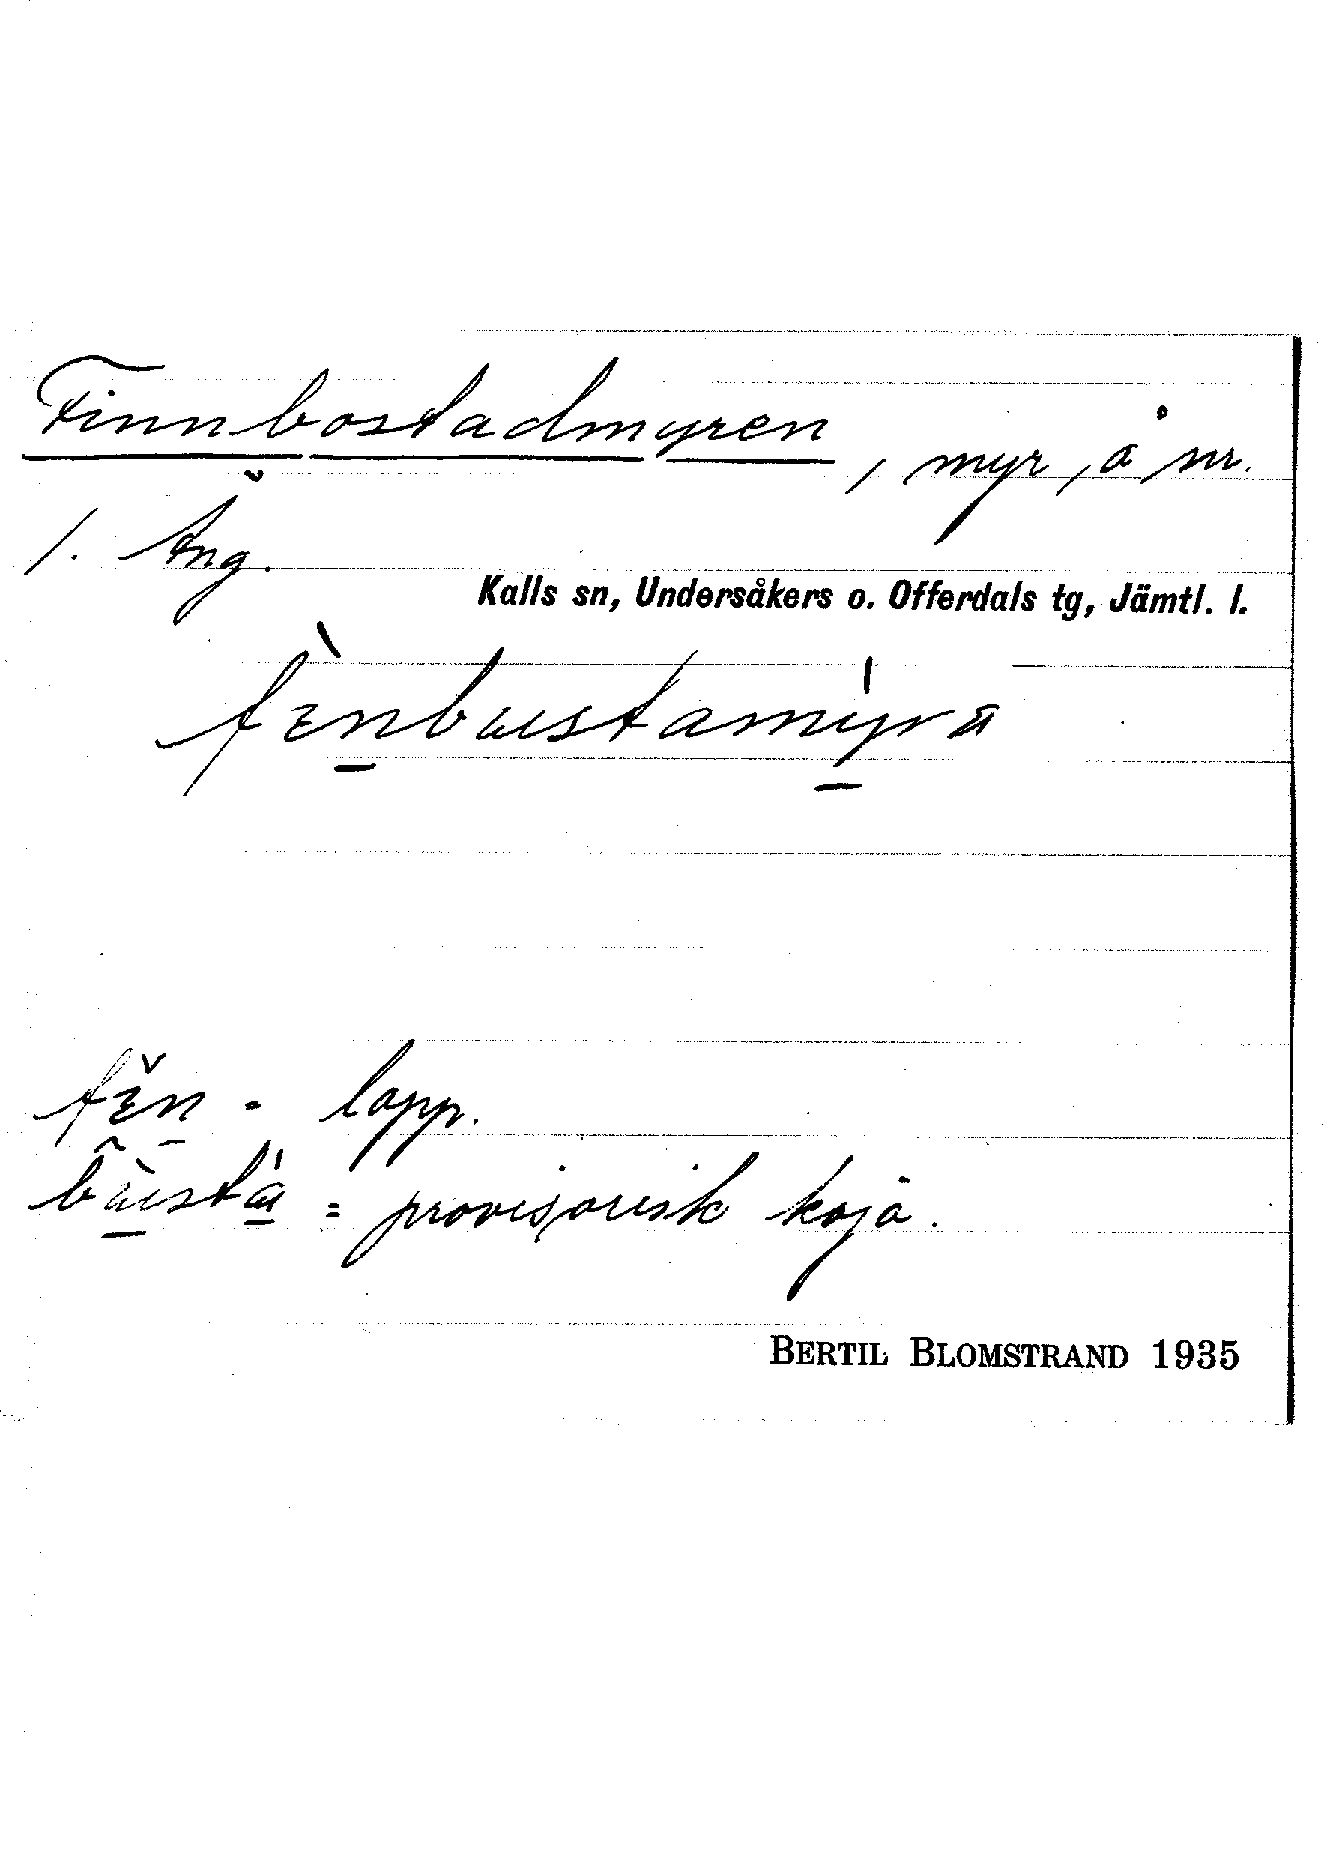 Finnbostadmyren, myr, å nr.
1. Äng.
Kalls sn, Undersåkers o. Offerdals tg, Jämtl. l.
fìnbustamyra
fin = lapp.
busta = provisorisk koja.
BERTIL BLOMSTRAND 1935